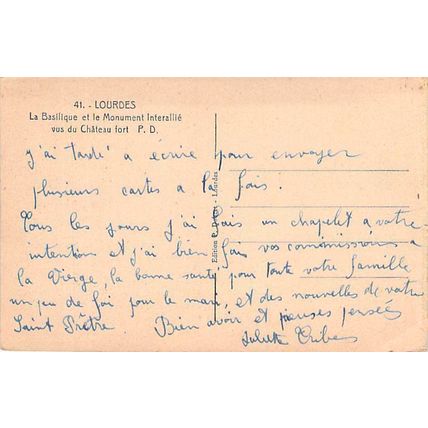 41. - LOURDES
La Basilique et le Monument Interallié
vus du Château fort P. D.
j'ai tardé a écrire pour envoyer
plusieurs cartes a la fois.
Tous les jours j'ai fais un chapelet a votre
intention et j'ai bien fais vos commissions a
la Vierge, la bonne santé pour toute votre famille
un peu de foi pour le mari, et des nouvelles de votre
Saint Prêtre. Bien avoir et pensées
Juliette
Edition P. Lourdes